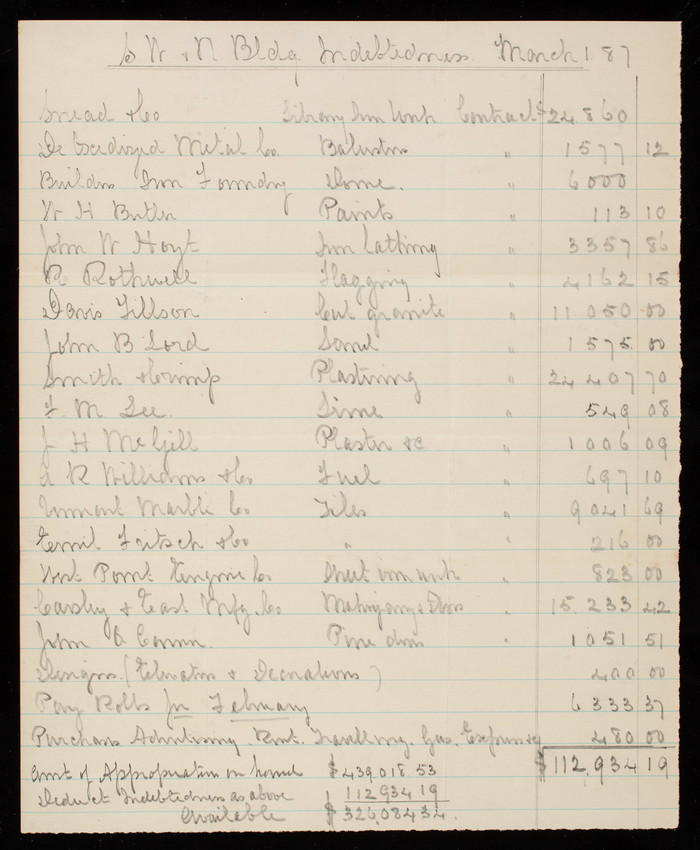 S W & N Bldg Indebtedness March 1. 87
Snead & Co Library Iron Work Contract $ 24.860
De Oxidized Metal Co. Balusters " 1577 12
Builders Iron Foundry Dome. " 6000
W H Butler Paints " 113 10
John W Hoyt Iron Lathing " 3357 86
R Rothwell Flagging " 4162 15
Davis Tillson Cut granite " 11 050 00
John B Lord Sand " 1575. 00
Smith & Crimp Plastering " 24 407 70
F. M. Lee. Lime " 549 08
J H McGill Plaster &c " 1006 09
R Williams & Co Fuel " 697 10
Vermont Marble Co Tiles " 9041 69
Emil Fritsch & Co " " 216 00
West Point Engine Co Sheet iron work " 823 00
Carsley & East Mfg. Co Mahogany & Doors " 15.233 42
John A Conner. Pine doors " 1051 51
Designs. (Elevators & Decorations) 400 00
Pay Rolls for February 6 333 37
Purchases Advertising. Rent. Travelling. Gas. Expenses &c 480 00
Amt of Appropriation on hand $439.018.53 $112,934 19
Deduct Indebtedness as above 112934 19
Available $326,084 34.